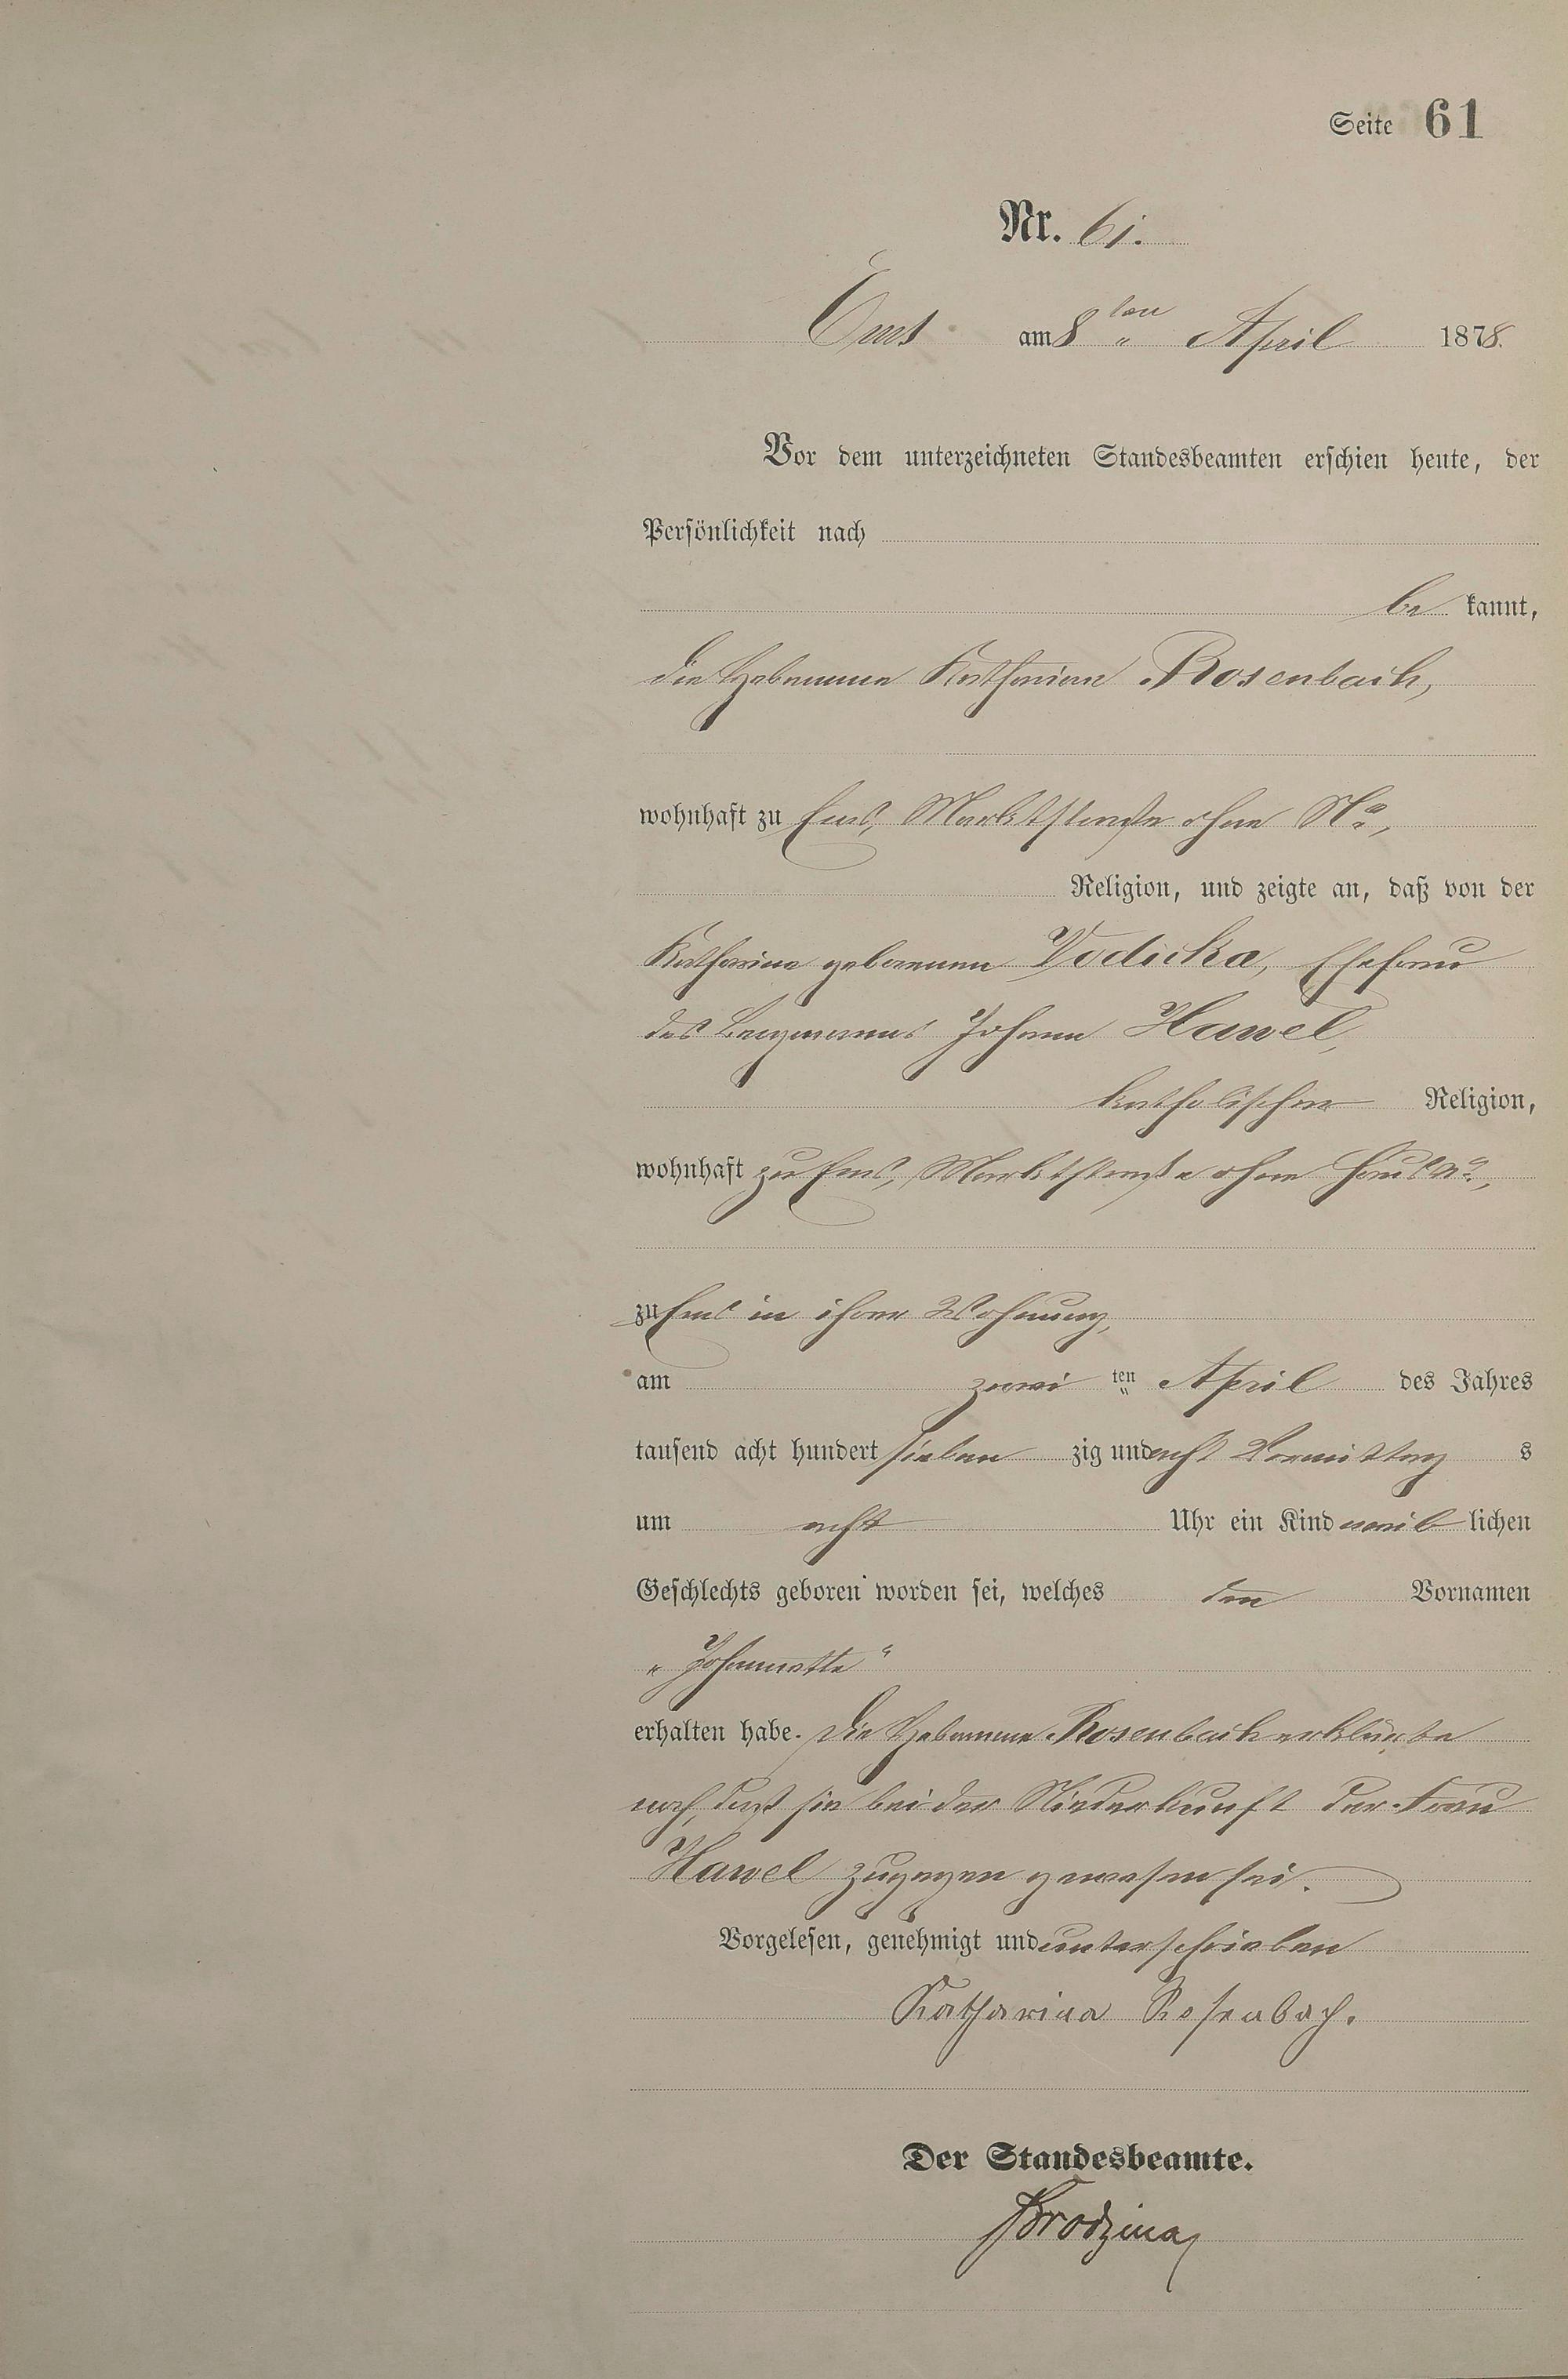 Seite 61
Nr. 61.
Ems am 8ten April 1878.
Vor dem unterzeichneten Standesbeamten erschien heute, der
Persönlichkeit nach
be kannt,
die Hebamme Katharine Rosenbach,
wohnhaft zu Ems, Marktstraße ohne No,
Religion, und zeigte an, daß von der
Katharine geborenen Vodicka, Ehefrau
des Bergmanns Johann Hawel,
katholischer Religion,
wohnhaft zu Ems, Marktstraße ohne Haus No,
zu Ems in ihrer Wohnung,
am zwei ten April des Jahres
tausend acht hundert sieben zig und acht Vormittag s
um acht Uhr ein Kind weib lichen
Geschlechts geboren worden sei, welches den Vornamen
„Johannette"
erhalten habe. Die Hebamme Rosenbach erklärte
noch, daß sie bei der Niederkunft der Frau
Hawel zugegen gewesen sei.
Vorgelesen, genehmigt und unterschrieben
Katharina Rosenbach.
Der Standesbeamte.